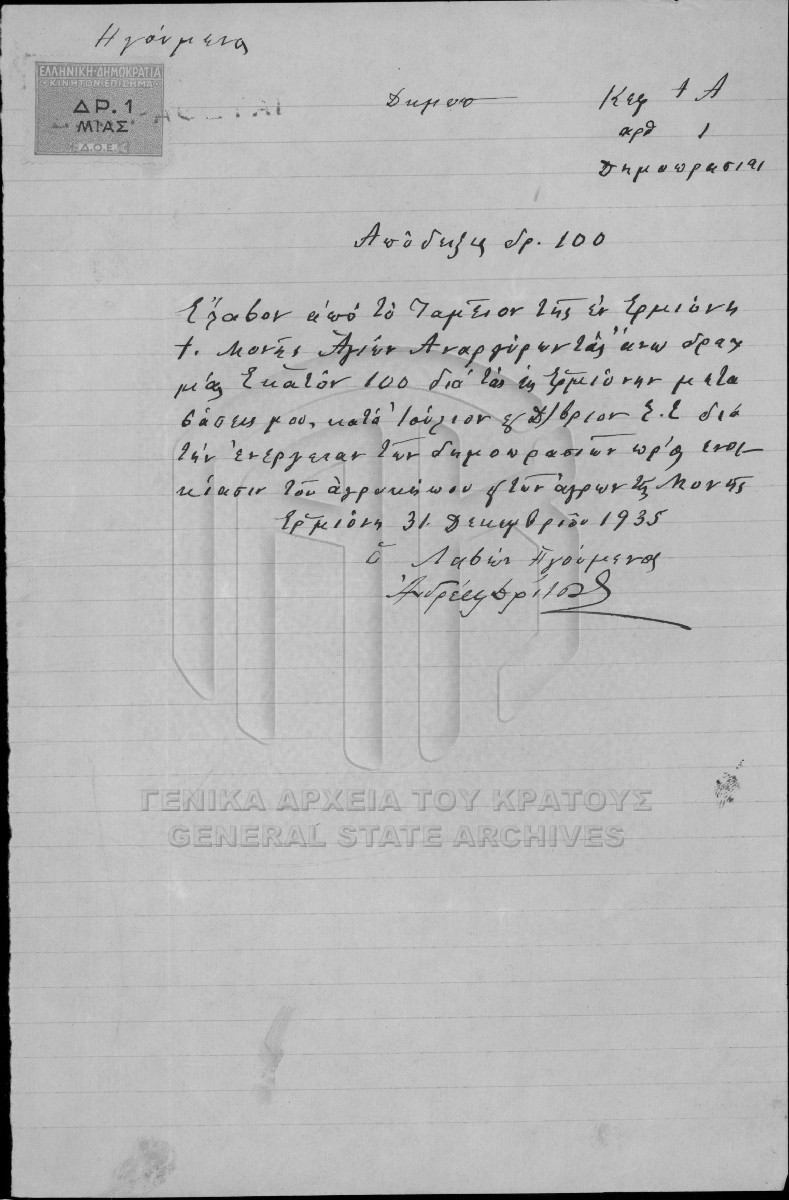 Ηγούμενος
ΕΛΛΗΝΙΚΗ ΔΗΜΟΚΡΑΤΙΑ
ΚΙΝΗΤΟΝ ΕΠΙΣΗΜΑ
ΔΡ. 1
ΜΙΑΣ
Δ.Ο.Ε.
Δημοπ
Κεφ Α
αρθ 1
Δημοπρασιαι
Απόδειξις δρ. 100
Έλαβον από το Ταμείον της εν Ερμιόνη
Μονής Αγίων Αναργύρων τας άνω δραχ
μάς Εκατόν 100 διά τας εις Ερμιόνην μετα
βάσεις μου, κατά Ιούλιον & Δ/βριον Ε.Ε διά
την ενέργειαν των δημοπρασιών προς ενοι-
κίασιν του αγροκήπου & των αγρών της Μονής
Ερμιόνη 31 Δεκεμβρίου 1935
ο Λαβών Ηγούμενος
ΓΕΝΙΚΑ ΑΡΧΕΙΑ ΤΟΥ ΚΡΑΤΟΥΣ
GENERAL STATE ARCHIVES